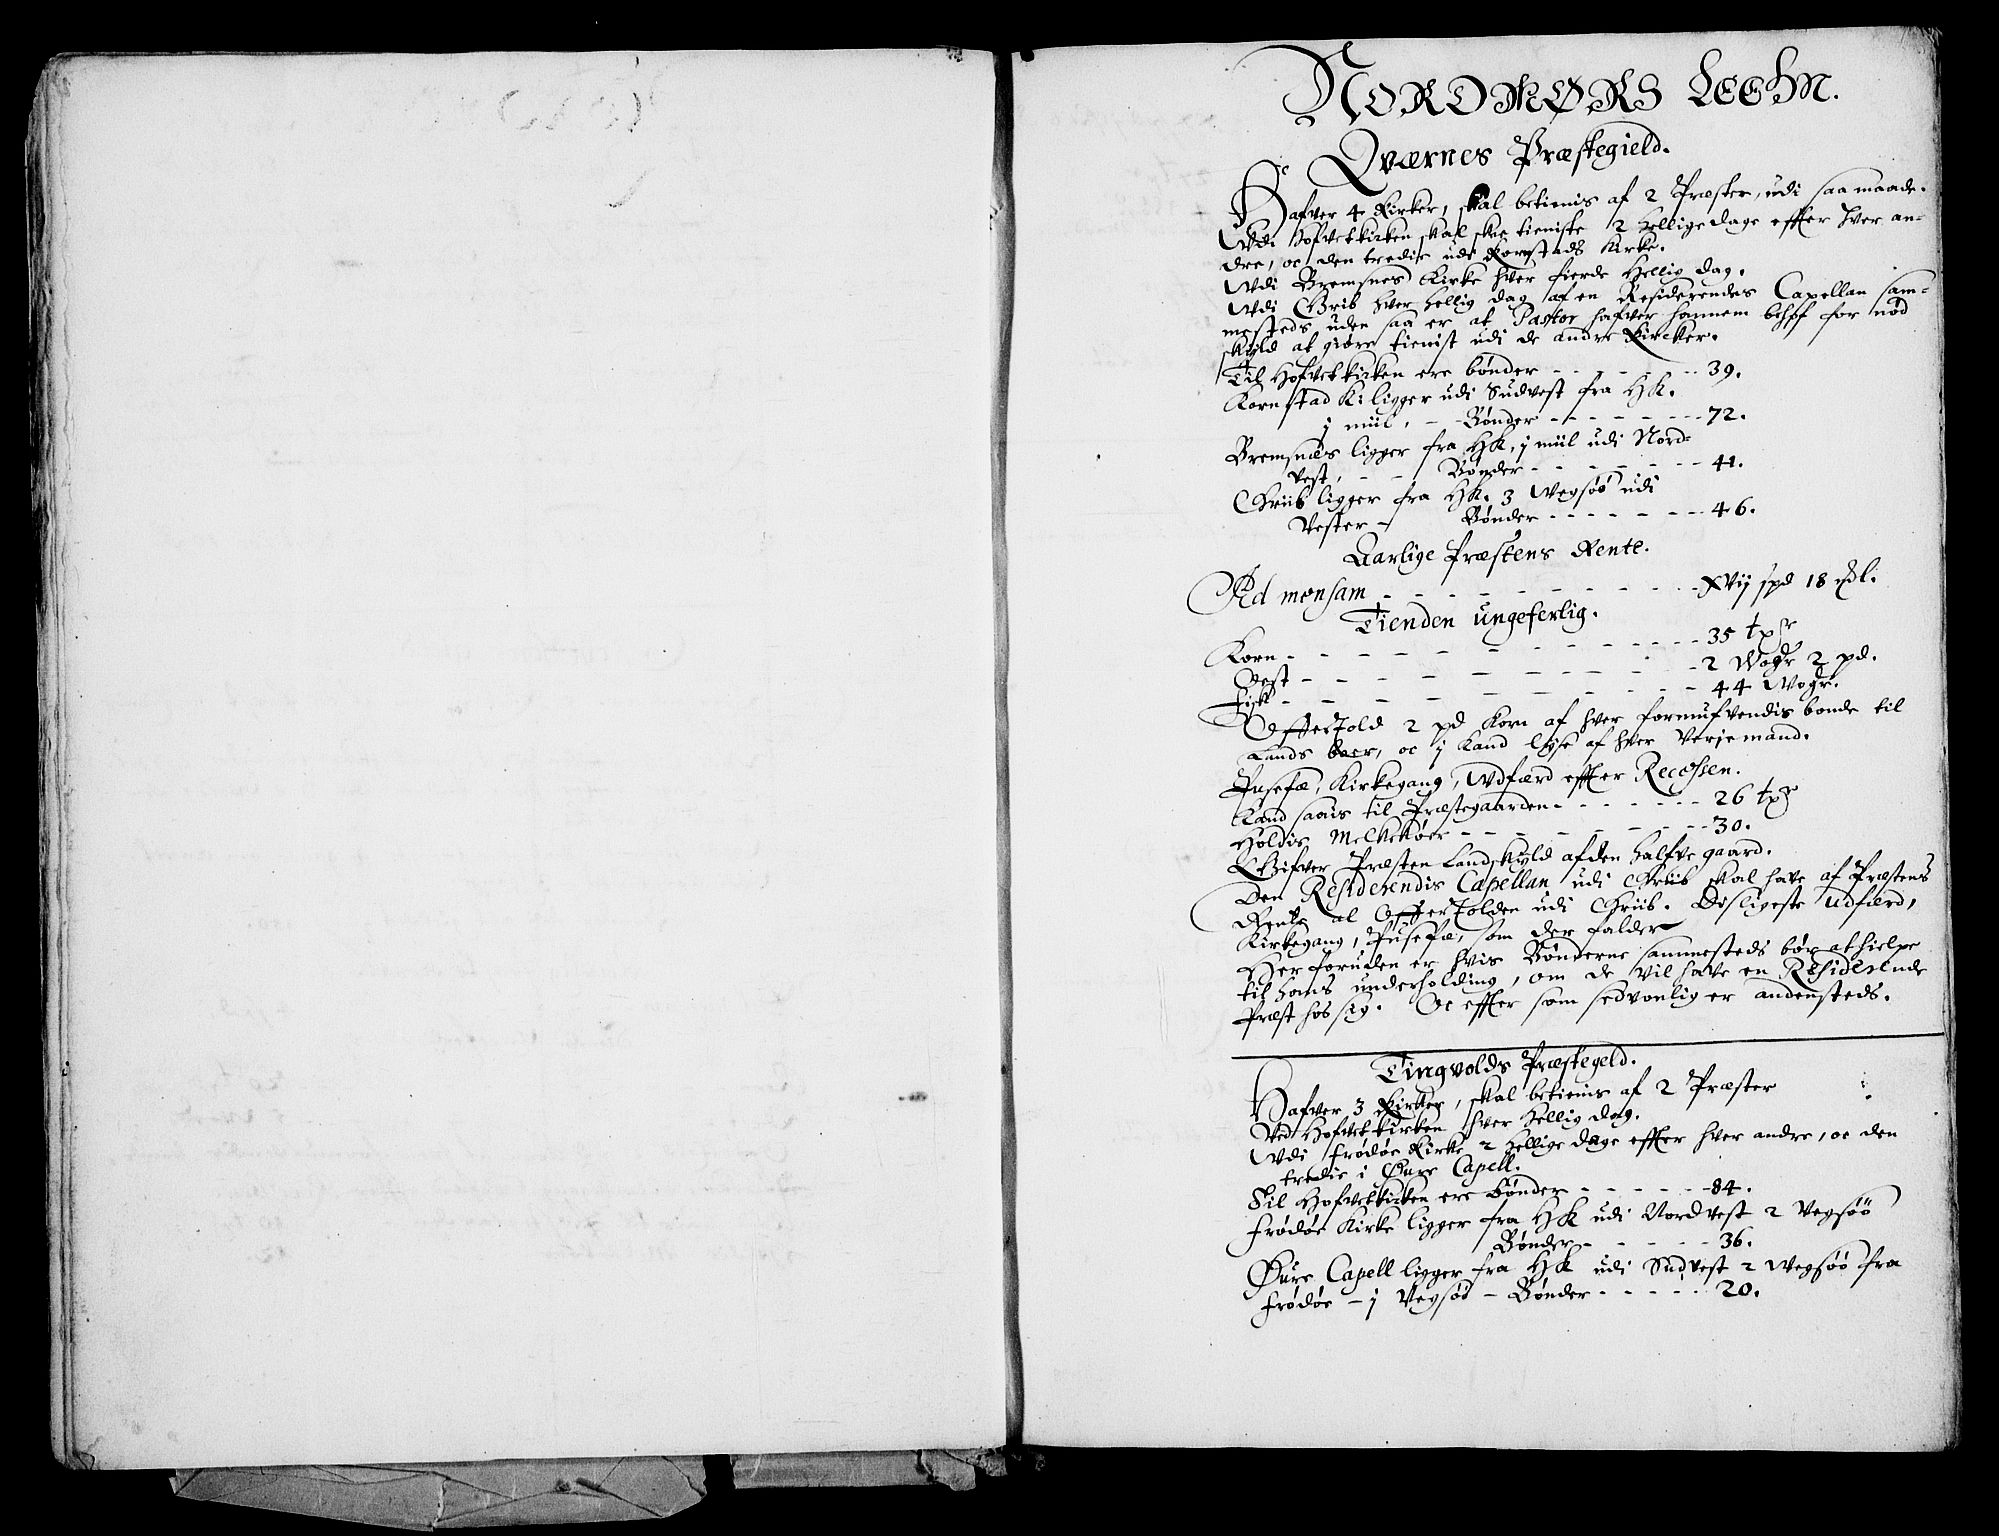 NORDMØRS LEEHN.
Qværnes Præstegield.
Hafver 4 Kirker, skal betienis af 2 Præster, udi saa maade.
Udi Hofvetkirken skal skee tieniste 2 hellige dage effter hver an-
dre, oc den tredie udi Kornstads Kirke.
Udi Bremsnes Kirke hver fierde Hellig dag.
Udi Grib hver hellig dag af en Residerendes Capellan sam-
mesteds uden saa er at Pastor hafver hannem behof for nød
skyld at giøre tienist udi de andre Kircker.
Til Hofvetkirken ere bønder - - - - - 39.
Kornstad Ki ligger udi Sudvest fra HK.
j miil, - - Bønder - - - - - - 72.
Bremsnæs ligger fra HK, j miil udi Nord-
vest, - - - Bønder - - - - - - 41.
Griib ligger fra HK. 3 Wegsøø udi
Vester - Bønder - - - - - - 46.
Aarlige Præstens Rente.
Ad mensam - - - - - - - - - XVij spd 18 
Tienden ungeferlig.
Korn - - - - - - - - - - 35
Oest - - - - - - - - - - 2 Wogr 2 pd.
Fisk - - - - - - - - - - 44 Wogr.
Offertold 2 pd Korn af hver formufvendis bonde til
Lands boer, oc j Kand lyse af hver Verjemand.
Pusefæ, Kirkegang, Udfærd effter Recessen.
Kand saais til Præstegaarden - - - - - - 26
Holdis Melkekøer - - - - - - - - 30.
Gifver Præsten Landskyld af den halfve gaard.
Den Residerendis Capellan udi Griib skal have af Præstens
Rente al Offertolden udi Griib. Disligeste Udfærd,
Kirkegang, Pusefæ, som der falder
Her foruden er hvis Bønderne sammesteds bør at hielpe
til hans underholding, om de vil have en Residerende
Præst hos sig. Oc effter som sedvonlig er andensteds.
Tingvolds Præstegeld.
Hafver 3 Kirker, skal betienis af 2 Præster
Ved Hofvetkirken hver hellig dag.
Udi Frødøe Kirke 2 hellige dage effter hver andre, oc den
tredie i Øure Capell.
Til Hofvetkirken ere Bønder - - - - - 84.
Frødøe Kirke ligger fra HK udi Nordvest 2 Vegsøø
Bønder - - - - - 36.
Øure Capell ligger fra HK udi Sudvest 2 Wegsøø fra
Frødøe - j Vegsøø - Bønder - - - - - 20.